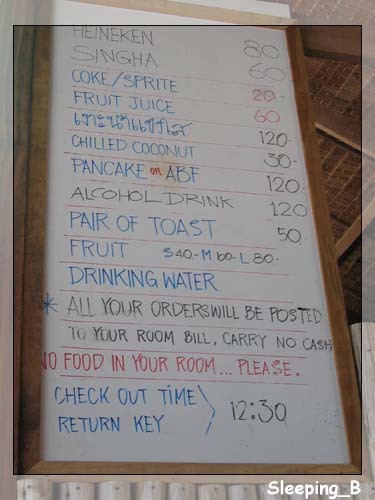 HEINEKEN 80
SINGHA 60
COKE/SPRITE 20.-
FRUIT JUICE 60
120.-
CHILLED COCONUT 30.-
PANCAKE OR ABF 120.
ALCOHOL DRINK 120
PAIR OF TOAST 50.
FRUIT S 40.- M 60- L 80.-
DRINKING WATER
* ALL YOUR ORDERS WILL BE POSTED
TO YOUR ROOM BILL, CARRY NO CASH
NO FOOD IN YOUR ROOM... PLEASE.
CHECK OUT TIME
RETURN KEY 12:30
Sleeping_B